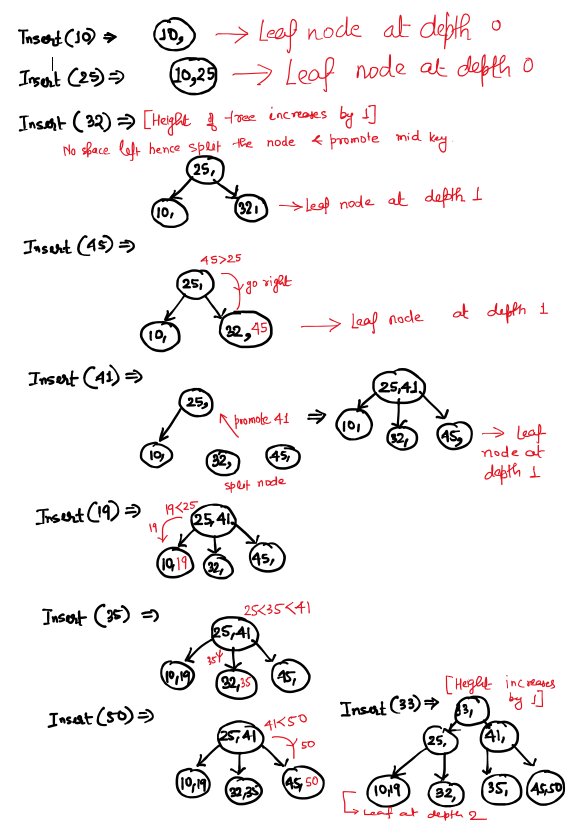 Insert(10) ⇒ 10, → Leaf node at depth 0
Insert (25) ⇒ 10,25 → Leaf node at depth 0
Insert (32) ⇒ [Height of tree increases by 1]
No space left hence split the node & promote mid key
25,
10, 32, → Leaf node at depth 1
Insert (45) ⇒
45>25
25, go right
10, 32, 45 → Leaf node at depth 1
Insert (41) ⇒
25, promote 41 ⇒ 25,41
10, 32, 45, 10, 32, 45, → Leaf
split node node at
depth 1
Insert (19) ⇒ 19<25
19 25,41
10,19 32, 45,
Insert (35) ⇒ 25<35<41
25,41
35
10,19 32,35 45,
Insert (50) ⇒ 41<50
25,41 50
10,19 32,35 45,50
Insert (33) ⇒ [Height increases
by 1]
33,
25, 41,
10,19 32, 35, 45,50
Leaf at depth 2